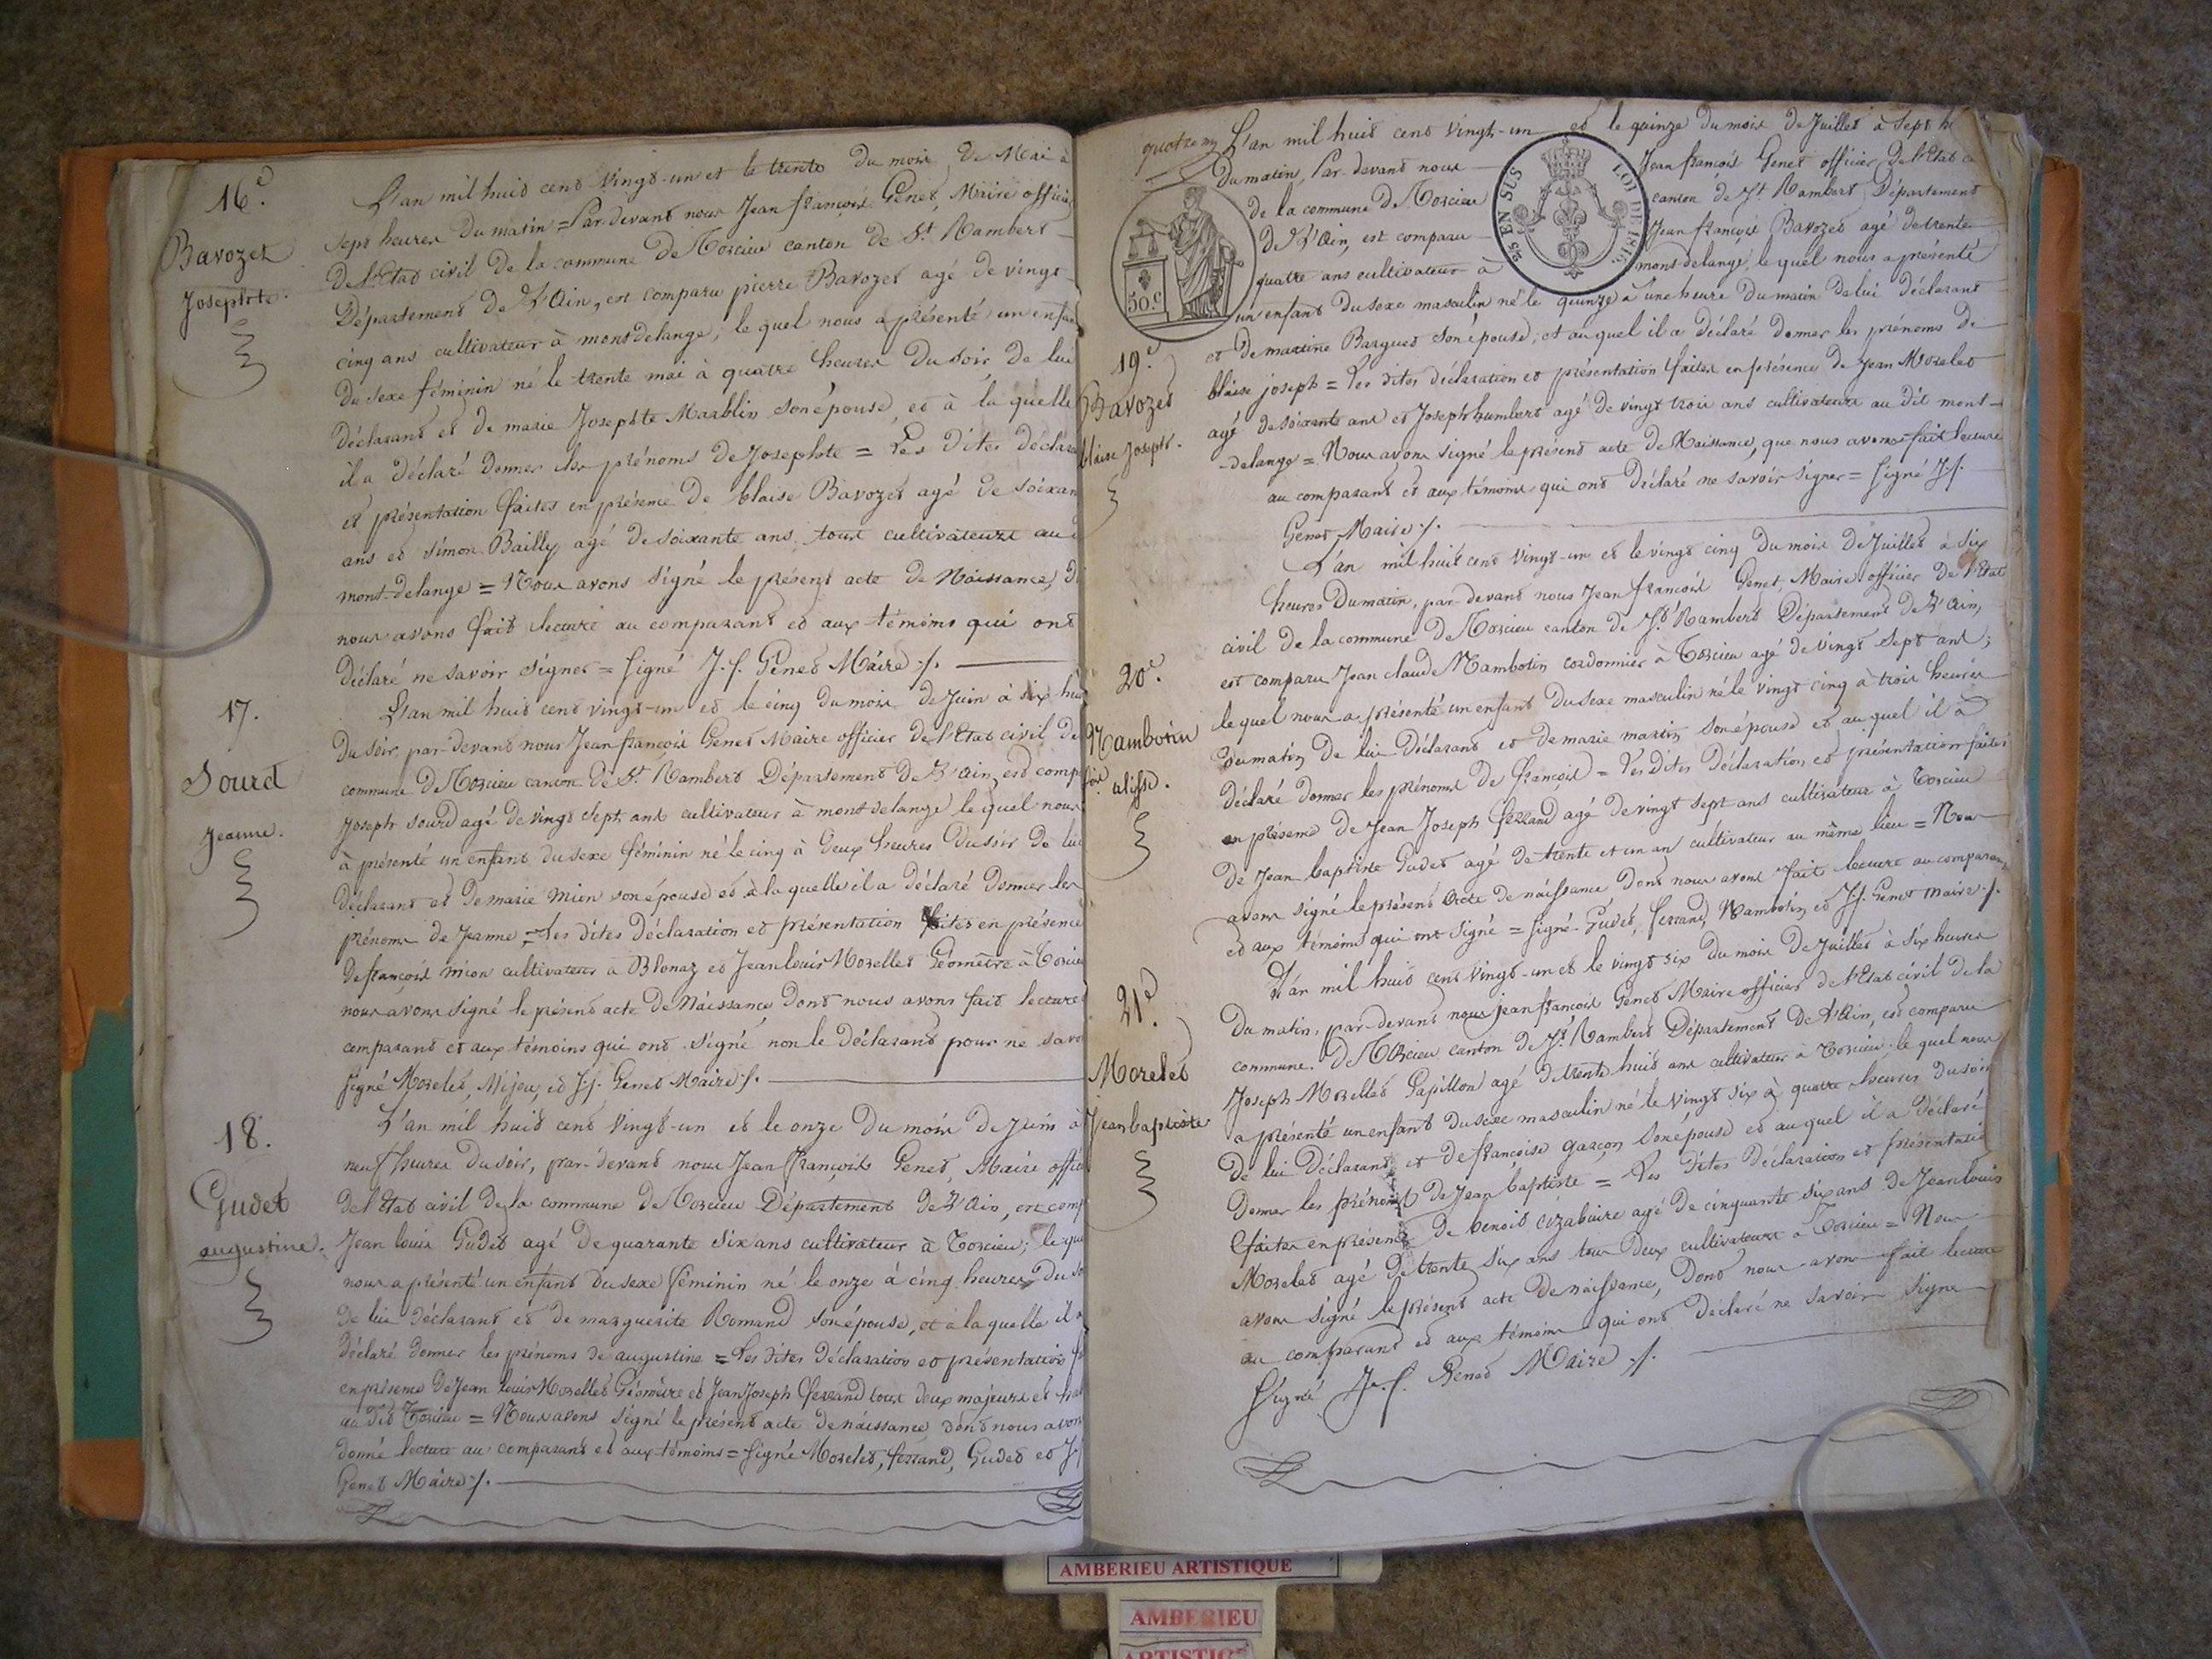 16.e
Bavozet
Josephte.
L'an mil huit cent vingt-un et le trente du mois de Mai à
sept heures du matin = Par devant nous Jean françois Genet, Maire officier
de l'Etat civil de la commune de Torcieu canton de St. Rambert
Département de L'Ain, est comparu pierre Bavozet agé de vingt
cinq ans cultivateur à montdelange, le quel nous a présenté un enfan
du sexe féminin né le trente mai à quatre heures du soir, de lui
déclarant et de marie Josephte Marblin son épouse, et à la quelle
il a déclaré donner les prénoms de Josephte = Les dites déclara
et présentation faites en présence de blaise Bavozet agé de soixan
ans et simon Bailly agé de soixante ans, tous cultivateurs au
mont-delange = Nous avons signé le présent acte de Naissance, d
nous avons fait lecture au comparant et aux témoins qui ont
déclaré ne savoir signer = signé J. f. Genet Maire ./.
17.
Sourd
Jeanne.
L'an mil huit cent vingt-un et le cinq du mois de Juin à six heu
du soir, par-devant nous Jean françois Genet Maire officier de l'Etat civil de
commune de Torcieu canton de St. Rambert Département de L'Ain, est comp
Joseph sourd agé de vingt sept ans cultivateur à mont delange le quel nous
à présenté un enfant du sexe féminin né le cinq à deux heures du soir de lui
déclarant et de marie mion son épouse et à la quelle il a déclaré donner les
prénoms de Jeanne = Les dites déclaration et présentation faites en présence
de françois mion cultivateur à Blonaz et Jean louis Morellet Géomètre à Torcieu
nous avons signé le présent acte de Naissance dont nous avons fait lecture
comparant et aux témoins qui ont signé non le déclarant pour ne savo
signé Morelet, et J. f. Genet Maire ./.
18.
Gudet
augustine.
L'an mil huit cent vingt-un et le onze du mois de Juin à
neuf heures du soir, par-devant nous Jean François Genet, Maire offic
de l'Etat civil de la commune de Torcieu Département de L'Ain, est comp
Jean louis Gudet agé de quarante six ans cultivateur à Torcieu; le que
nous a présenté un enfant du sexe féminin né le onze à cinq heures du so
de lui déclarant et de marguerite Romand son épouse, et à la quelle il a
déclaré donner les prénoms de augustine = Les dites déclaration et présentation f
en présence de Jean louis Morellet Géomètre et Jean Joseph ferrand tous deux majeurs et
au dit Torcieu = Nous avons signé le présent acte de naissance, dont nous avon
donné lecture au comparant et aux témoins = signé Morelet, ferrand, Gudet et J. f
Genet Maire ./.
L'an mil huit cent vingt-un et le quinze du mois de Juillet à sept h
du matin, Par-devant nous Jean françois Genet officier de l'Etat ci
de la commune de Torcieu canton de St. Rambert, Département
de L'Ain, est comparu Jean françois Bavozet agé de trente
quatre ans cultivateur à mont delange, le quel nous a présenté
50.c
25 EN SUS
LOI DE 1816.
19.e
Bavozet
blaise Joseph.
un enfant du sexe masculin né le quinze à une heure du matin de lui déclarant
et de martine Barguet son épouse, et au quel il a déclaré donner les prénoms de
blaise joseph = Les dites déclaration et présentation faites en présence de Jean Morelet
agé de soixante ans et Joseph humbert agé de vingt trois ans cultivateurs au dit mont-
delange = Nous avons signé le présent acte de Naissance, que nous avons fait lecture
au comparant et aux témoins qui ont déclaré ne savoir signer = signé J. f.
Genet Maire ./.
20.e
Mambotin
L'an mil huit cent vingt-un et le vingt cinq du mois de Juillet à six
heures du matin, par-devant nous Jean françois Genet, Maire officier de l'Etat
civil de la commune de Torcieu canton de St. Rambert Département de L'Ain,
est comparu Jean claude Mambotin cordonnier à Torcieu agé de vingt sept ans;
le quel nous a présenté un enfant du sexe masculin né le vingt cinq à trois heures
du matin, de lui déclarant et de marie martin son épouse et au quel il à
déclaré donner les prénoms de françois = Les dites déclaration et présentation faites
en présence de Jean Joseph ferrand agé de vingt sept ans cultivateur à Torcieu
de Jean baptiste Gudet agé de trente et un an cultivateur au même lieu = Nous
avons signé le présent acte de naissance dont nous avons fait lecture au comparan
et aux témoins qui ont signé = signé Gudet, ferrand, Mambotin et J. f. Genet maire ./.
21.e
Morelet
Jean baptiste
L'an mil huit cent vingt-un et le vingt six du mois de Juillet à six heures
du matin, par-devant nous jean françois Genet Maire officier de l'Etat civil de la
commune de Torcieu canton de St. Rambert Département de L'Ain, est comparu
Joseph Morellet Papillon agé de trente huit ans cultivateur à Torcieu; le quel nous
a présenté un enfant du sexe masculin né le vingt six à quatre heures du soir
de lui déclarant et de françoise garçon son épouse et au quel il a déclaré
donner les prénoms de Jean baptiste = Les dites déclaration et présentatio
faites en présence de benoit agé de cinquante six ans de Jean louis
Morelet agé de trente six ans tous deux cultivateurs à Torcieu = Nous
avons signé le présent acte de naissance, dont nous avons fait lecture
au comparant et aux témoins qui ont déclaré ne savoir signer
Signé J. f. Genet Maire ./.
AMBERIEU ARTISTIQUE
AMBERIEU
ARTISTIQUE